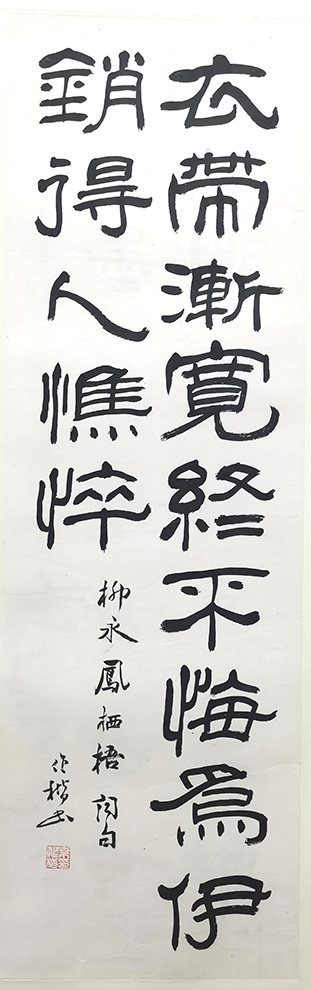 衣帶漸寬終不悔為伊
銷得人憔悴
柳永鳳栖梧詞句